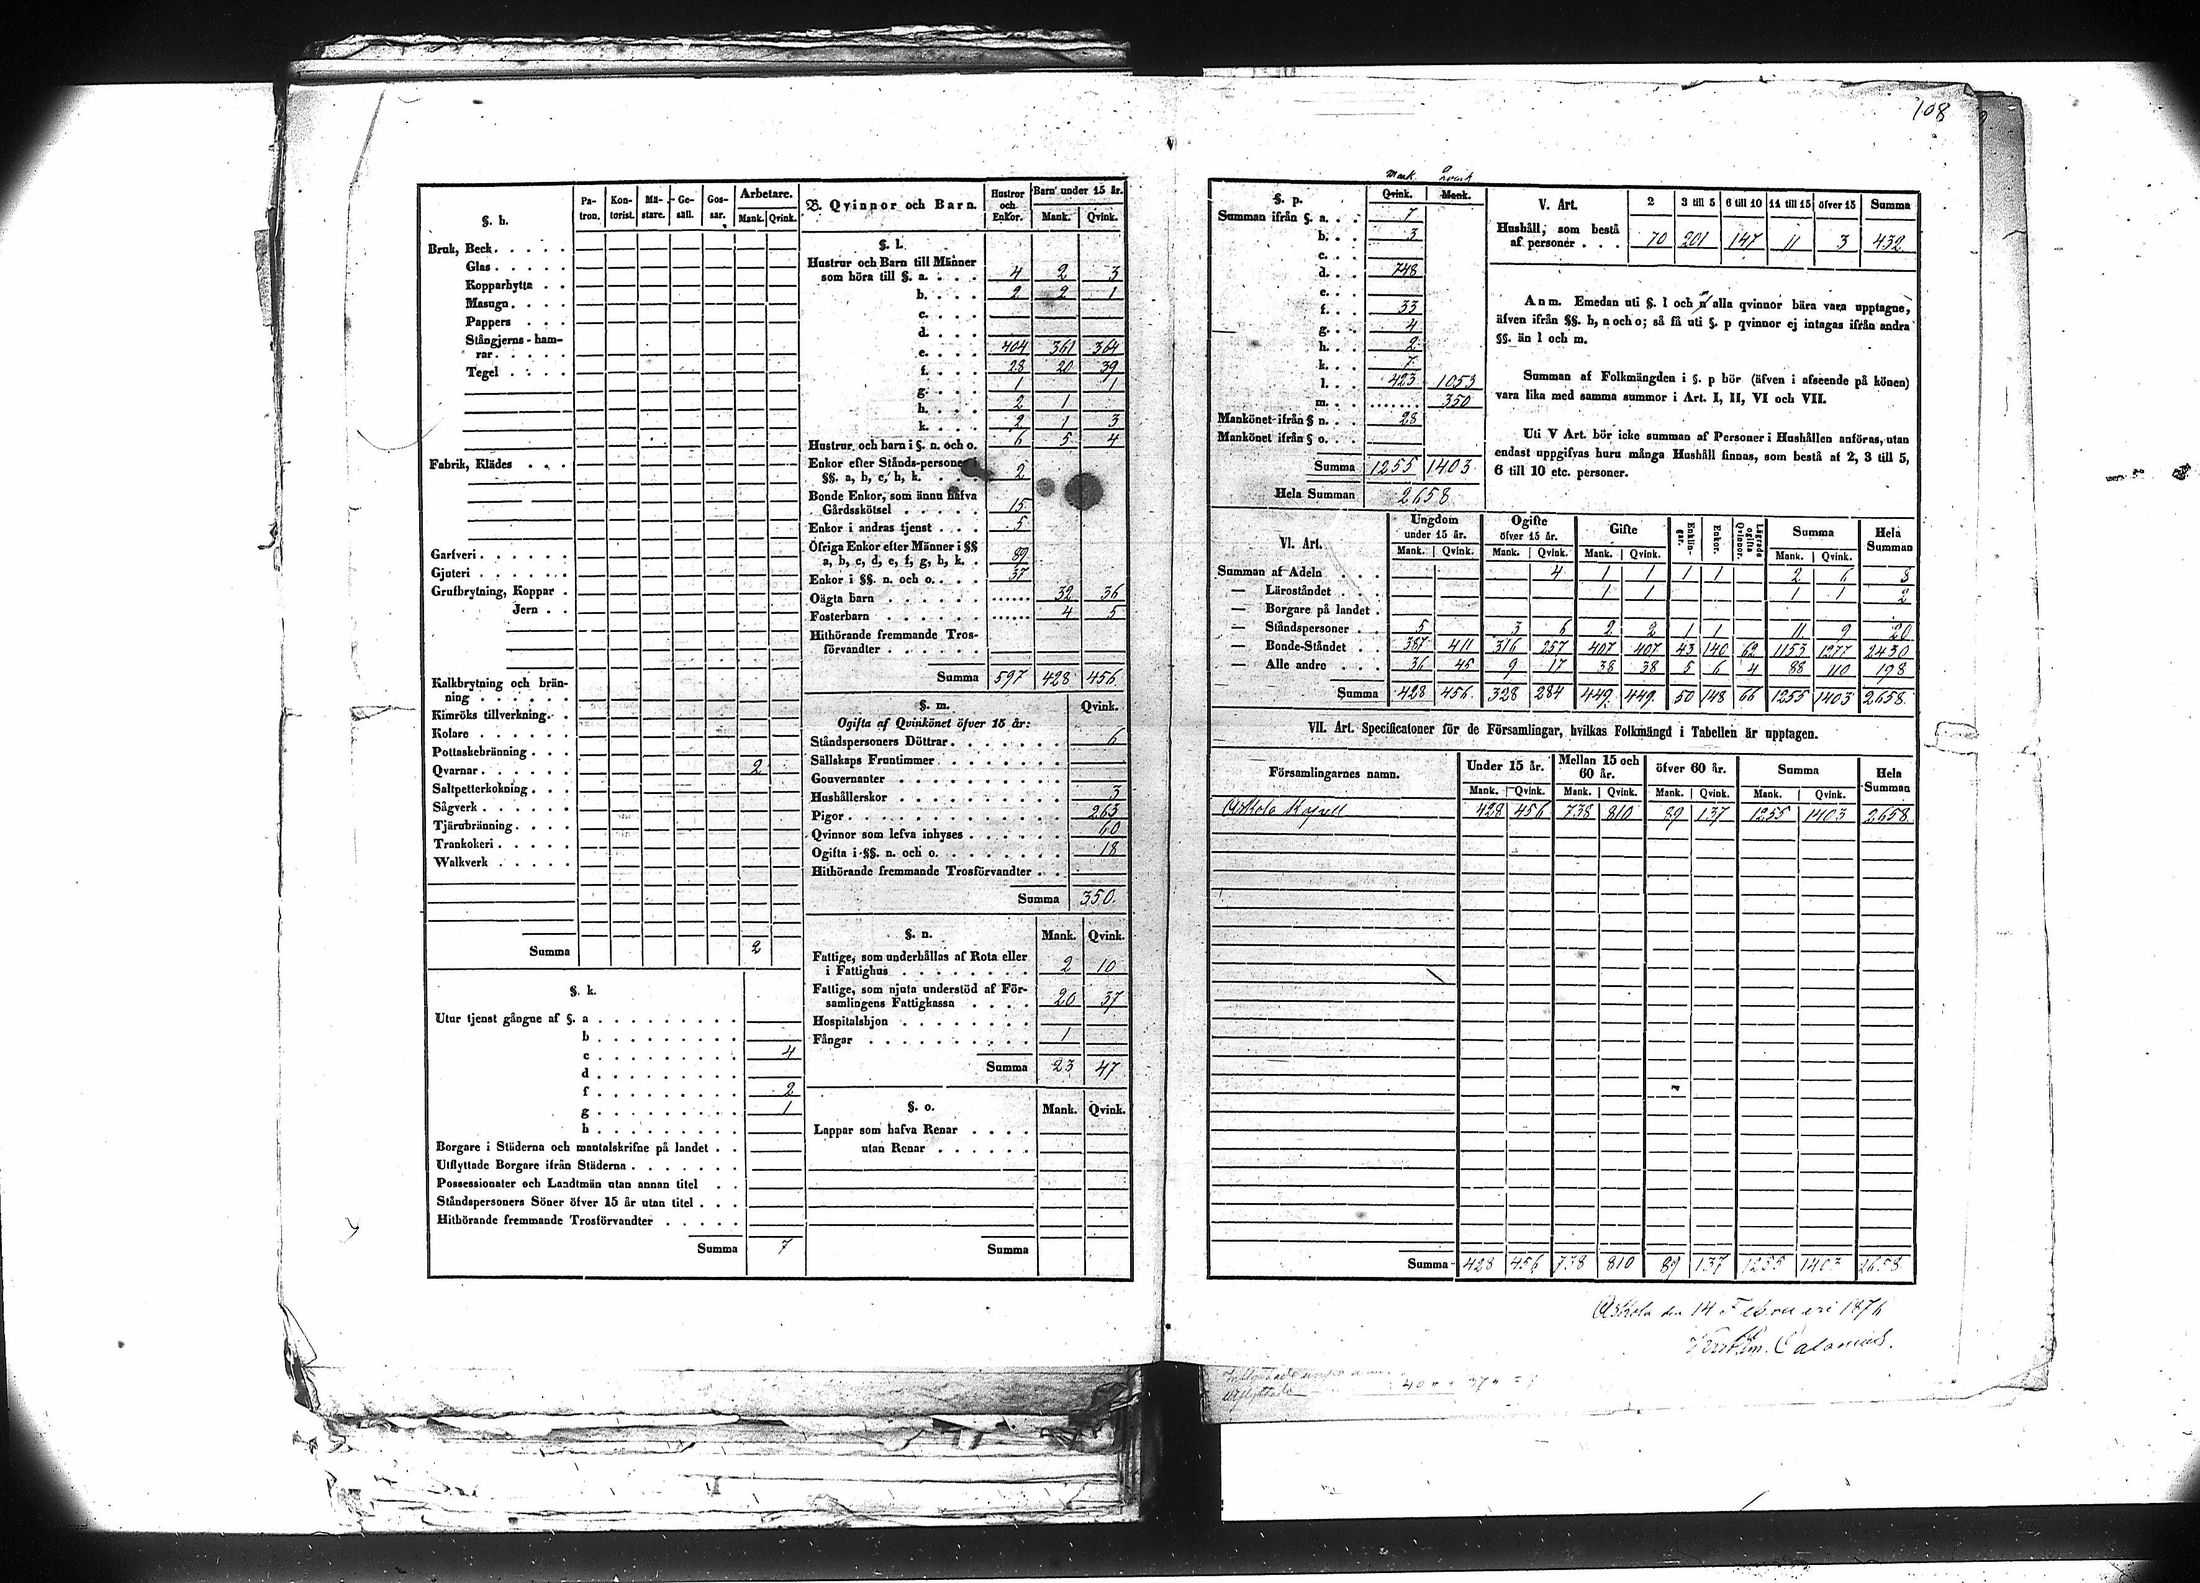 108
§. h.
Pa-
tron.
Kon-
torist.
Mä-
stare.
Ge-
säll.
Gos-
sar.
Arbetare.
Mank. Qvink.
Bruk, Beck
Glas
Kopparhytta
Masugn
Pappers
Stångjerns-ham-
rar
Tegel
Fabrik, Klädes
Garfveri
Gjuteri
Grufbrytning, Koppar
Jern
Kalkbrytning och brän-
ning
Kimröks tillverkning
Kolare
Pottaskebränning
Qvarnar 2
Saltpetterkokning
Sågverk
Tjärubränning
Trankokeri
Walkverk
Summa 2
§. k.
Utur tjenst gångne af §. a
b
c 4
d
f 2
g 1
h
Borgare i Städerna och mantalskrifne på landet
Utflyttade Borgare ifrån Städerna
Possessionater och Landtmän utan annan titel
Ståndspersoners Söner öfver 15 år utan titel
Hithörande fremmande Trosförvandter
Summa 7
B. Qvinnor och Barn.
Hustror
och
Enkor.
Barn under 15 år.
Mank. Qvink.
§. l.
Hustrur och Barn till Männer
som höra till §. a. 4 2 3
b. 2 2 1
c.
d.
e. 404 361 364
f. 28 20 39
g. 1 1
h. 2 1
k. 2 1 3
Hustrur och barn i §. n. och o. 6 5 4
Enkor efter Stånds-personer i
§§. a, b, c, h, k. 2
Bonde Enkor, som ännu hafva
Gårdsskötsel 15
Enkor i andras tjenst 5
Öfriga Enkor efter Männer i §§
a, b, c, d, e, f, g, h, k. 89
Enkor i §§. n. och o. 37
Oägta barn 32 36
Fosterbarn 4 5
Hithörande fremmande Tros-
förvandter
Summa 597 428 456
§. m. Qvink.
Ogifta af Qvinkönet öfver 15 år:
Ståndspersoners Döttrar 6
Sällskaps Fruntimmer
Gouvernanter
Hushållerskor 3
Pigor 263
Qvinnor som lefva inhyses 60
Ogifta i §§. n. och o. 18
Hithörande fremmande Trosförvandter
Summa 350.
§. n. Mank. Qvink.
Fattige, som underhållas af Rota eller
i Fattighus 2 10
Fattige, som njuta understöd af För-
samlingens Fattigkassa 20 37
Hospitalshjon
Fångar 1
Summa 23 47
§. o. Mank. Qvink.
Lappar som hafva Renar
utan Renar
Summa
Mank. Qvink
§. p. Qvink. Mank.
Summan ifrån §. a. 7
b. 3
c.
d. 748
e.
f. 33
g. 4
h. 2
k. 7
l. 423 1053
m. 350
Mankönet ifrån § n. 28
Mankönet ifrån § o.
Summa 1255 1403
Hela Summan 2658
V. Art. 2 3 till 5 6 till 10 11 till 15 öfver 15 Summa
Hushåll, som bestå
af personer 70 201 147 11 3 432
Anm. Emedan uti §. l och m alla qvinnor bära vara upptagne,
äfven ifrån §§. h, n och o; så få uti §. p qvinnor ej intagas ifrån andra
§§. än l och m.
Summan af Folkmängden i §. p bör (äfven i afseende på könen)
vara lika med samma summor i Art. I, II, VI och VII.
Uti V Art. bör icke summan af Personer i Hushållen anföras, utan
endast uppgifvas huru många Hushåll finnas, som bestå af 2, 3 till 5,
6 till 10 etc. personer.
VI. Art.
Ungdom
under 15 år.
Ogifte
öfver 15 år.
Gifte
Enklin-
gar.
Enkor.
Lägrade
ogifta
Qvinnor.
Summa
Hela
Summan
Mank. Qvink. Mank. Qvink. Mank. Qvink. Mank. Qvink.
Summan af Adeln 4 1 1 1 1 2 6 8
— Läroståndet 1 1 1 1 2
— Borgare på landet
— Ståndspersoner 5 3 6 2 2 1 1 11 9 20
— Bonde-Ståndet 387 411 316 257 407 407 43 140 62 1153 1277 2430
— Alle andre 36 45 9 17 38 38 5 6 4 88 110 198
Summa 428 456 328 284 449 449 50 148 66 1255 1403 2658
VII. Art. Specificatoner för de Församlingar, hvilkas Folkmängd i Tabellen är upptagen.
Församlingarnes namn.
Under 15 år.
Mellan 15 och
60 år.
öfver 60 år.
Summa
Hela
Summan
Mank. Qvink. Mank. Qvink. Mank. Qvink. Mank. Qvink.
Askola Kapell 428 456 738 810 89 137 1255 1403 2658
Summa 428 456 738 810 89 137 1255 1403 2658
Askola den 14 Februari 1876
Calonius.
Utflyttade